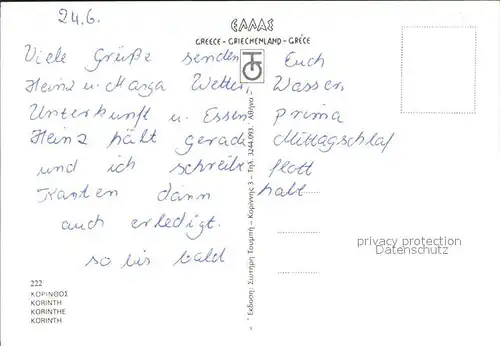 24.6.
ΕΛΛΑΣ
GREECE - GRIECHENLAND - GRÈCE
Viele Grüße senden Euch
Heinz u. Marga Wetter, Wasser,
Unterkunft u. Essen prima
Heinz hält gerade Mittagschlaf
und ich schreibe flott
Karten dann habt
auch erledigt.
so bis bald
Εκδοση: Σωτήρη Τουμπή - Κορίννης 3 - Τηλ. 3244.093 - Αθήνα
privacy protection
Datenschutz
222
ΚΟΡΙΝΘΟΣ
KORINTH
KORINTHE
KORINTH